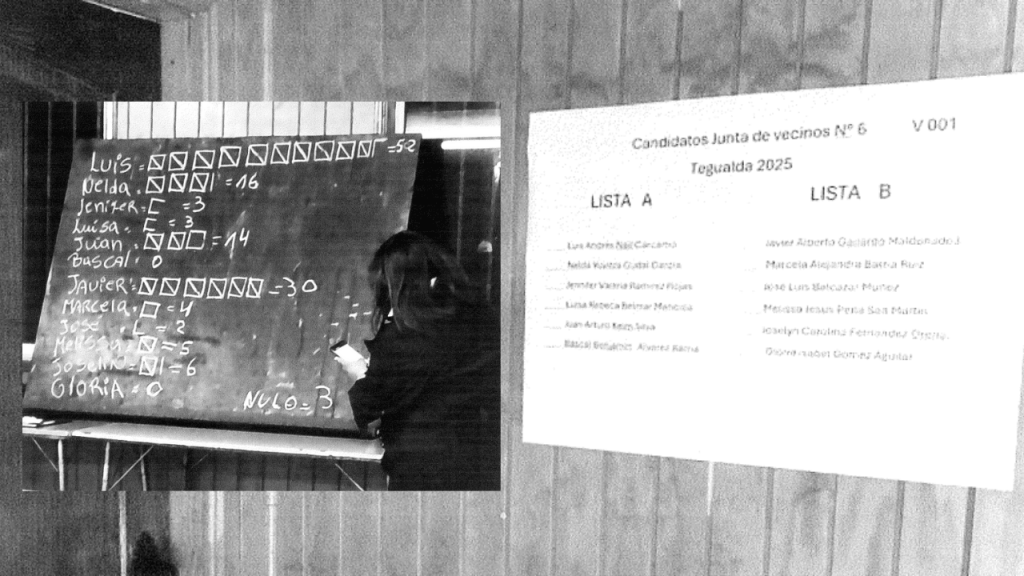 LUIS = 52
Nelda = 16
Jenifer = 3
Luisa = 3
Juan = 14
BASCAL = 0
JAVIER = 30
MARCELA = 4
José = 2
Melissa = 5
Joselin = 6
GLORIA = 0
NULO = 3
Candidatos Junta de vecinos Nº 6 V 001
Tegualda 2025
LISTA A
Luis Andrés Carcamo
Nelda
Jennifer Valeria Ramirez Rojas
Luisa Rebeca Belmar Mancilla
Juan Arturo Silva
Bascal Benjamin Alvarez Barria
LISTA B
Javier Alberto Gallardo Maldonado
Marcela Alejandra Barria Ruiz
José Luis Balcazar Muñoz
Melissa Jesus Peña San Martin
Joselyn Carolina Fernandez
Gloria Isabel Gomez Aguilar